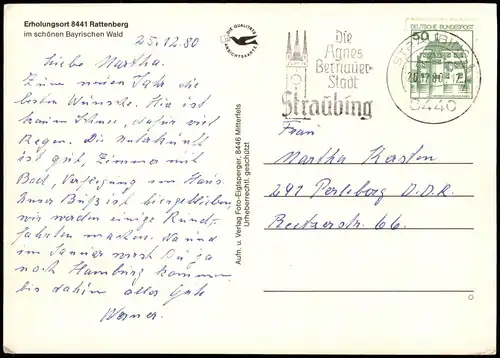 Erholungsort 8441 Rattenberg
im schönen Bayrischen Wald
DIE QUALITÄTS
ANSICHTSKARTE
25.12.80
Liebe Martha.
Zum neuen Jahr die
besten Wünsche. Hier ist
kaum Schnee, dafür viel
Regen. Die Unterkunft
ist gut, Zimmer mit
Bad, Verpflegung im Haus.
Unser Bus ist hiergeblieben,
wir werden einige Rund-
fahrten machen. Na und
im Januar wirst Du ja
nach Hamburg kommen
bis dahin alles Gute
Werner.
Aufn. u. Verlag Foto-Eiglsperger, 8446 Mitterfels
Urheberrechtl. geschützt
Die
Agnes
Bernauer-
Stadt
Straubing
STRAUBING
8440
50
DEUTSCHE BUNDESPOST
Frau
Martha Karsten
291 Perleberg D.D.R.
Reetzerstr. 66.